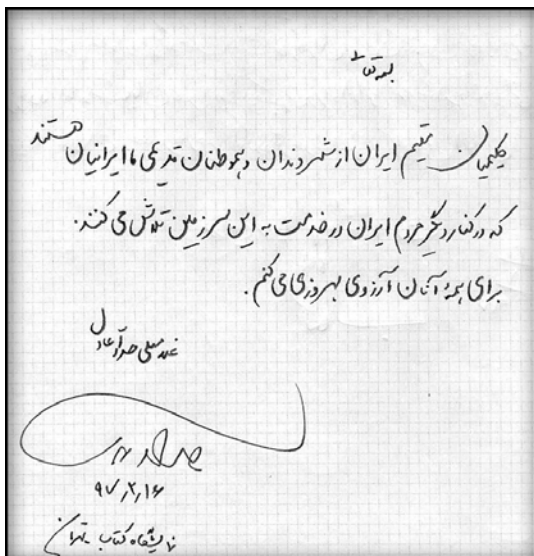 بسمه تعالی
کلیمیان مقیم ایران از شهروندان و هموطنان قدیمی ما ایرانیان هستند
که در کنار دیگر مردم ایران در خدمت به این سرزمین تلاش می کنند.
برای همهٔ آنان آرزوی بهروزی می کنم.
غلامعلی حداد عادل
۹۷/۲/۱۶
نمایشگاه کتاب - تهران